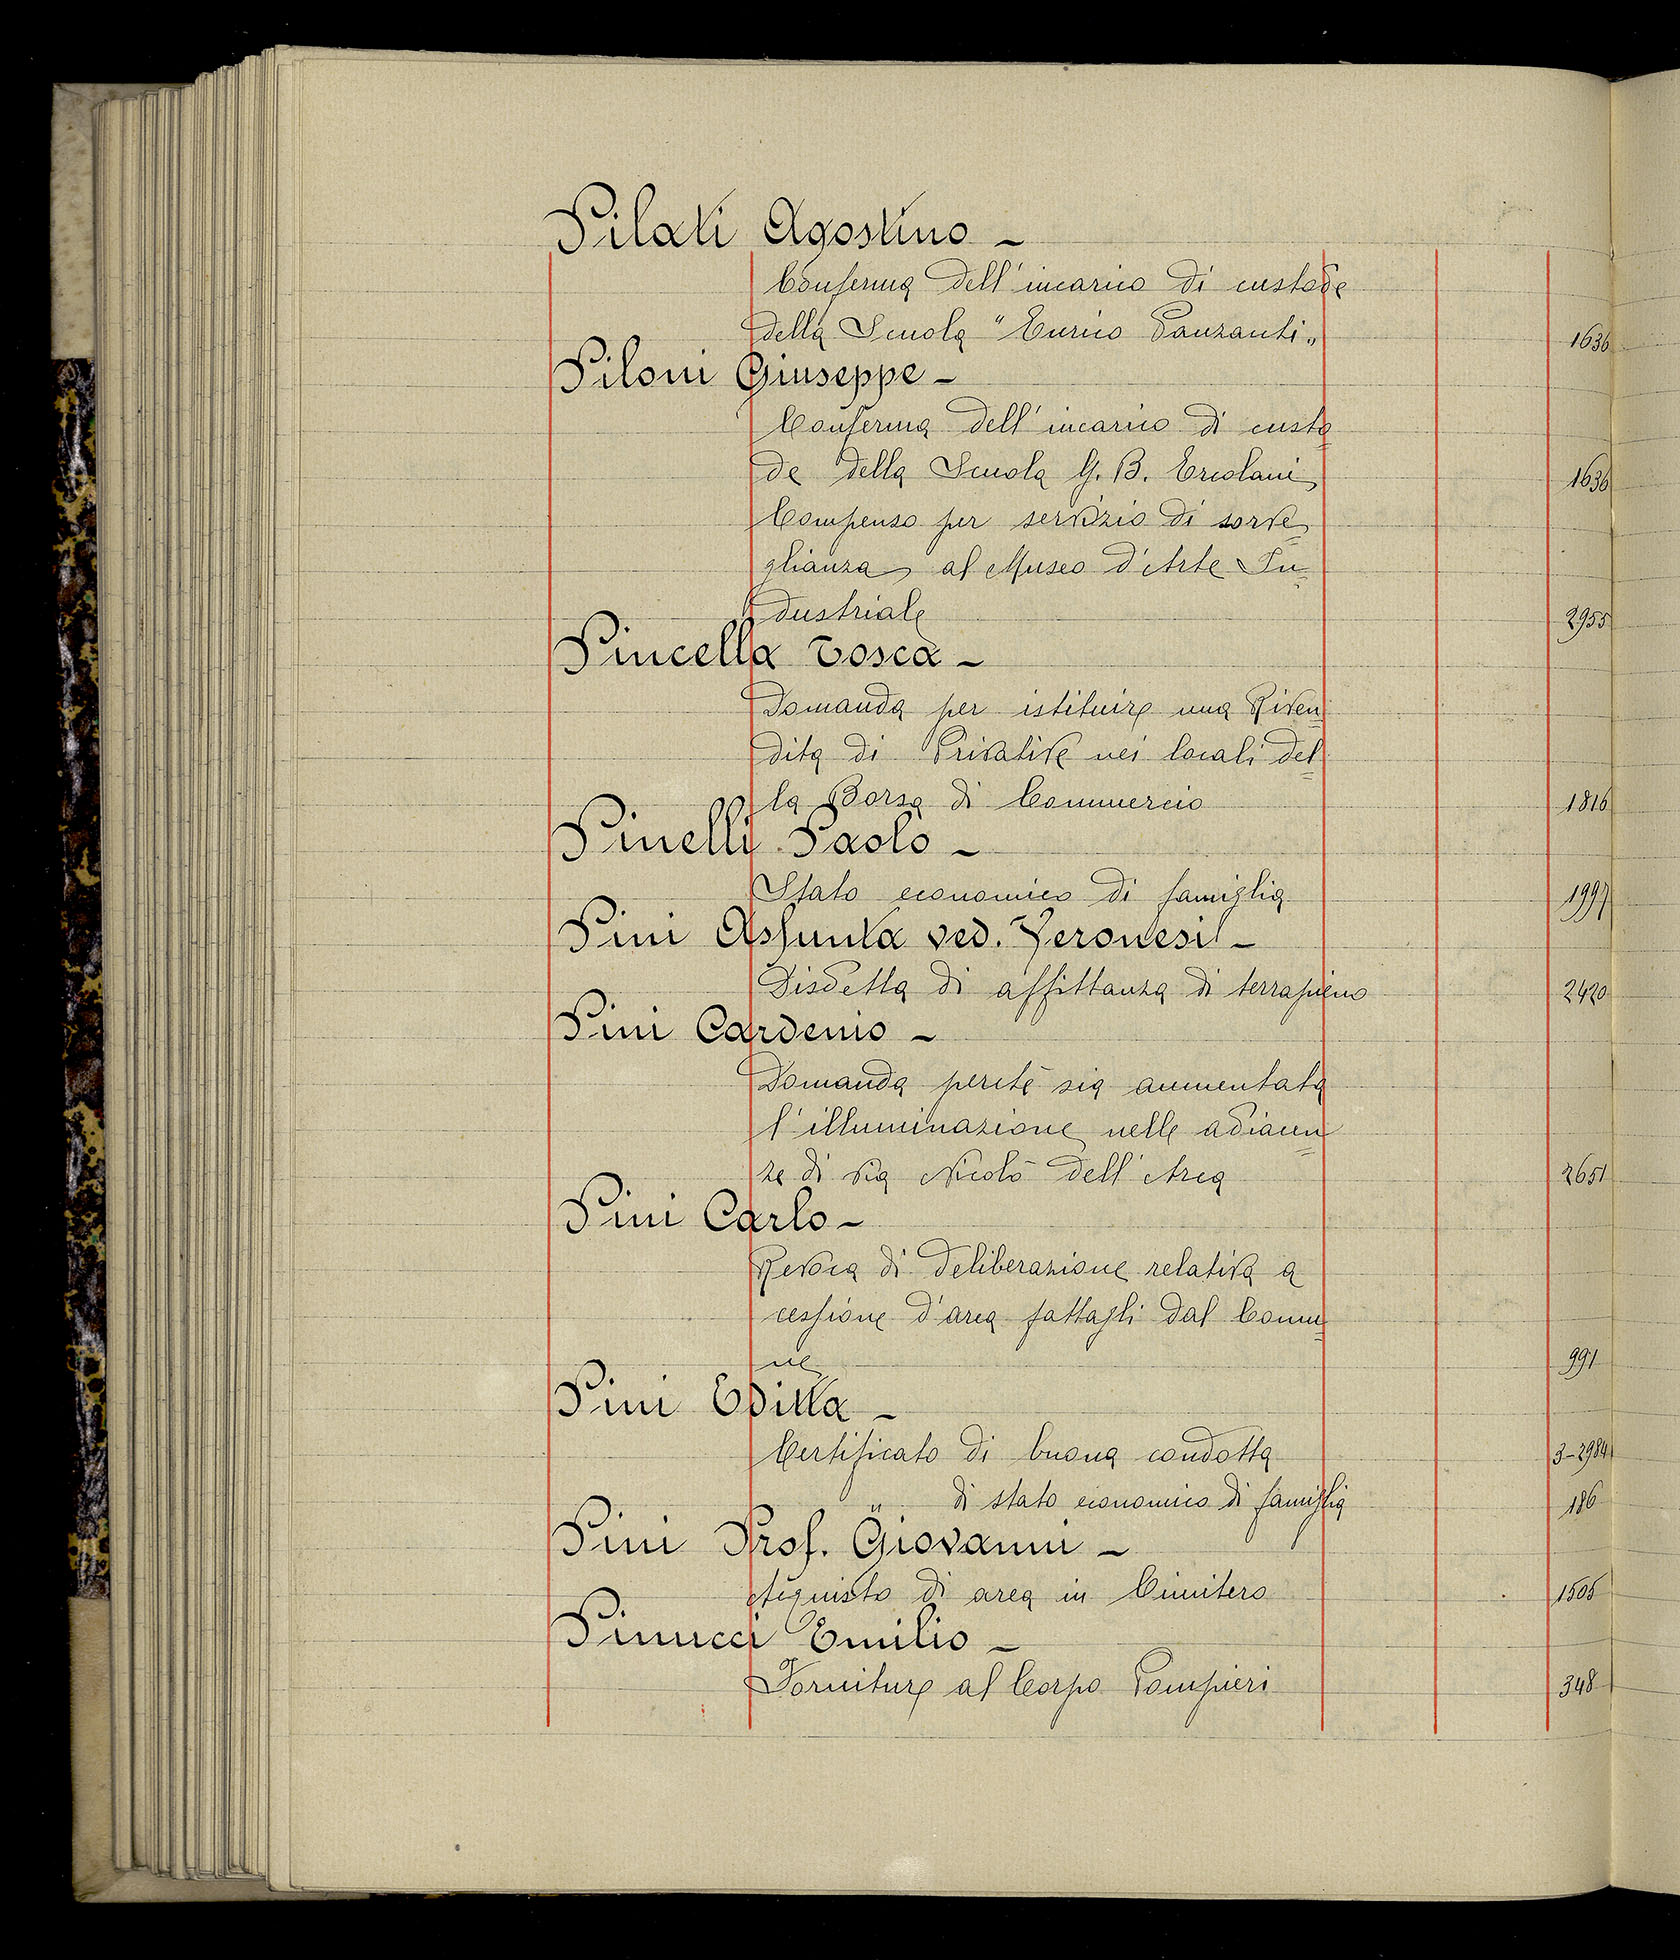 Pilati Agostino -
Conferma dell'incarico di custode
della Scuola "Enrico Panzanti„ 1636
Piloni Giuseppe -
Conferma dell'incarico di custo=
de della Scuola G. B. Ercolani 1636
Compenso per servizio di sorve=
glianza al Museo d'Arte In=
dustriale 2955
Pincella Tosca -
Domanda per istituire una Riven=
dita di Privative nei locali del=
la Borsa di Commercio 1816
Pinelli Paolo -
Stato economico di famiglia 1997
Pini Assunta ved. Veronesi -
Disdetta di affittanza di terrapieno 2420
Pini Cardenio -
Domanda perchè sia aumentata
l'illuminazione nelle adiacen=
ze di via Nicolò dell'Arca 2651
Pini Carlo -
Revoca di deliberazione relativa a
cessione d'area fattagli dal Comu=
ne 991
Pini Editta -
Certificato di buona condotta 3-2984
" di stato economico di famiglia 186
Pini Prof. Giovanni -
Acquisto di area in Cimitero 1505
Pinucci Emilio -
Forniture al Corpo Pompieri 348